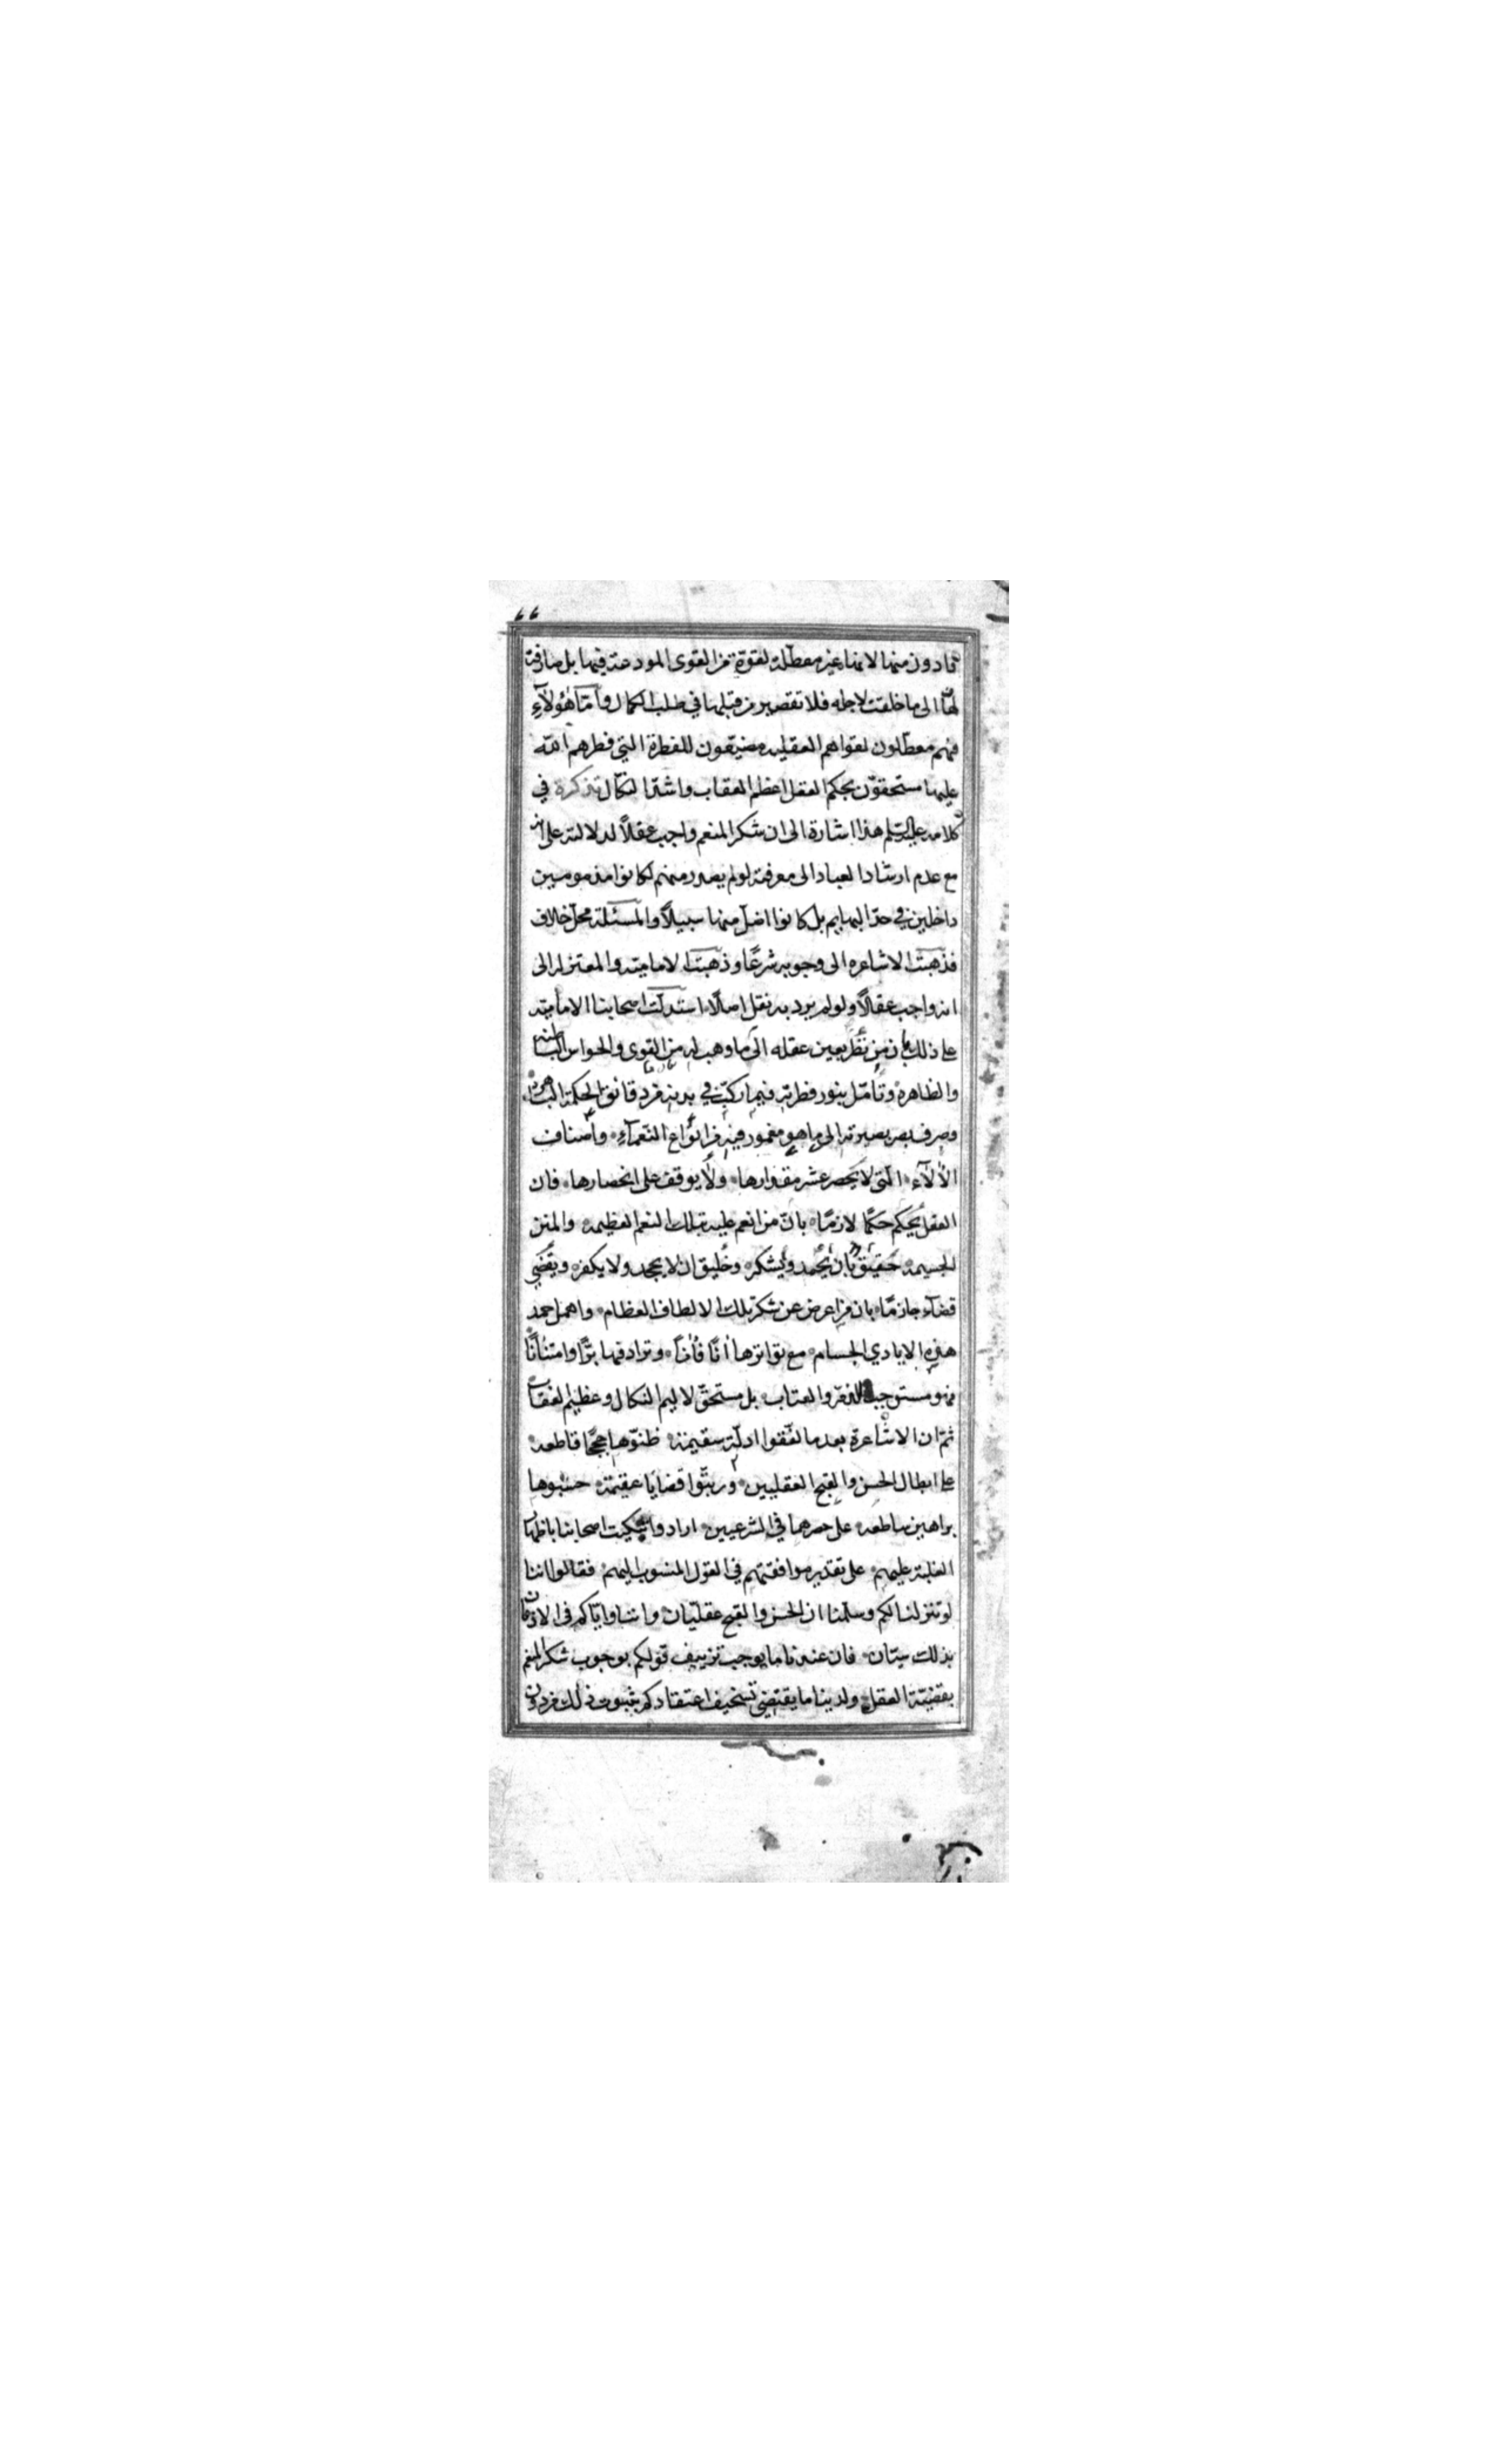 ٦٦
فما دون منها لانها غير معطلة لقوة من القوى المودعة فيها بل صارفة
لها الى ما خلقت لاجله فلا تقصير من قبلها في طلب الكمال وأمّا هؤلآءِ
فهم معطّلون لقواهم العقليه مضيّعون للفطرة التي فطرهم الله
عليها مستحقّون بحكم العقل اعظم العقاب واشدّ النكال تذكرة في
كلامه عليه السلم هذا اشارة الى ان شكر المنعم واجب عقلاً لدلالته على انه
مع عدم ارشاد العباد الى معرفة لو لم يصدر منهم لكانوا مذمومين
داخلين في حدّ البهايم بل كانوا اضلّ منها سبيلاً والمسئلة محلّ خلاف
فذهبت الاشاعره الى وجوبه شرعًا وذهبت الاماميّه والمعتزله الى
انه واجب عقلاً ولو لم يرد به نقل اصلًا استدلّت اصحابنا الاماميّه
على ذلك بأن من نَظَر بعين عقله الى ما وهب له من القوى والحواس الباطنه
والظاهره وتأمّل بنور فطرته فيما ركّب في بدنه من دقائق الحكمة الباهره
وصرف بصر بصيرته الى ما هو مغمور فيه من انواع النعمآءِ وأصناف
الألآء التي لا يُحصر عشر مقدارها ولا يوقف على انحصارها فان
العقل يَحكم حكمًا لازمًا بانّ من انعم عليه بتلك النعم العظيمه والمنن
الجسيمه حقيق بأن يُحمد ويُشكر وخليق ان لا يجحد ولا يكفر ويقضي
قضآء جازمًا بان من اعرض عن شكر تلك الالطاف العظام واهمل حمد
هذه الايادي الجسام مع تواترها آنًا فآنًا وترادفها برًّا وامتنانًا
فهو مستوجب للذمّ والعتاب بل مستحقّ لاليم النكال وعظيم العقاب
ثمّ ان الاشاعرة بعد ما لفّقوا ادلّة سقيمة ظنّوها حججًا قاطعه
على ابطال الحسن والقبح العقليين ورتّبوا قضايا عقيمة حسبوها
براهين ساطعه على حصرهما في الشرعيين ارادوا تبكيت اصحابنا باظهار
الغلبة عليهم على تقدير موافقتهم في القول المنسوب اليهم فقالوا اننا
لو تنزلنا لكم وسلّمنا ان الحسن والقبح عقليّان واننا وايّاكم في الاذعان
بذلك سيّان فان عندنا ما يوجب تزييف قولكم بوجوب شكر المنعم
بقضيّة العقل ولدينا ما يقتضي تسخيف اعتقادكم بثبوت ذلك من دون